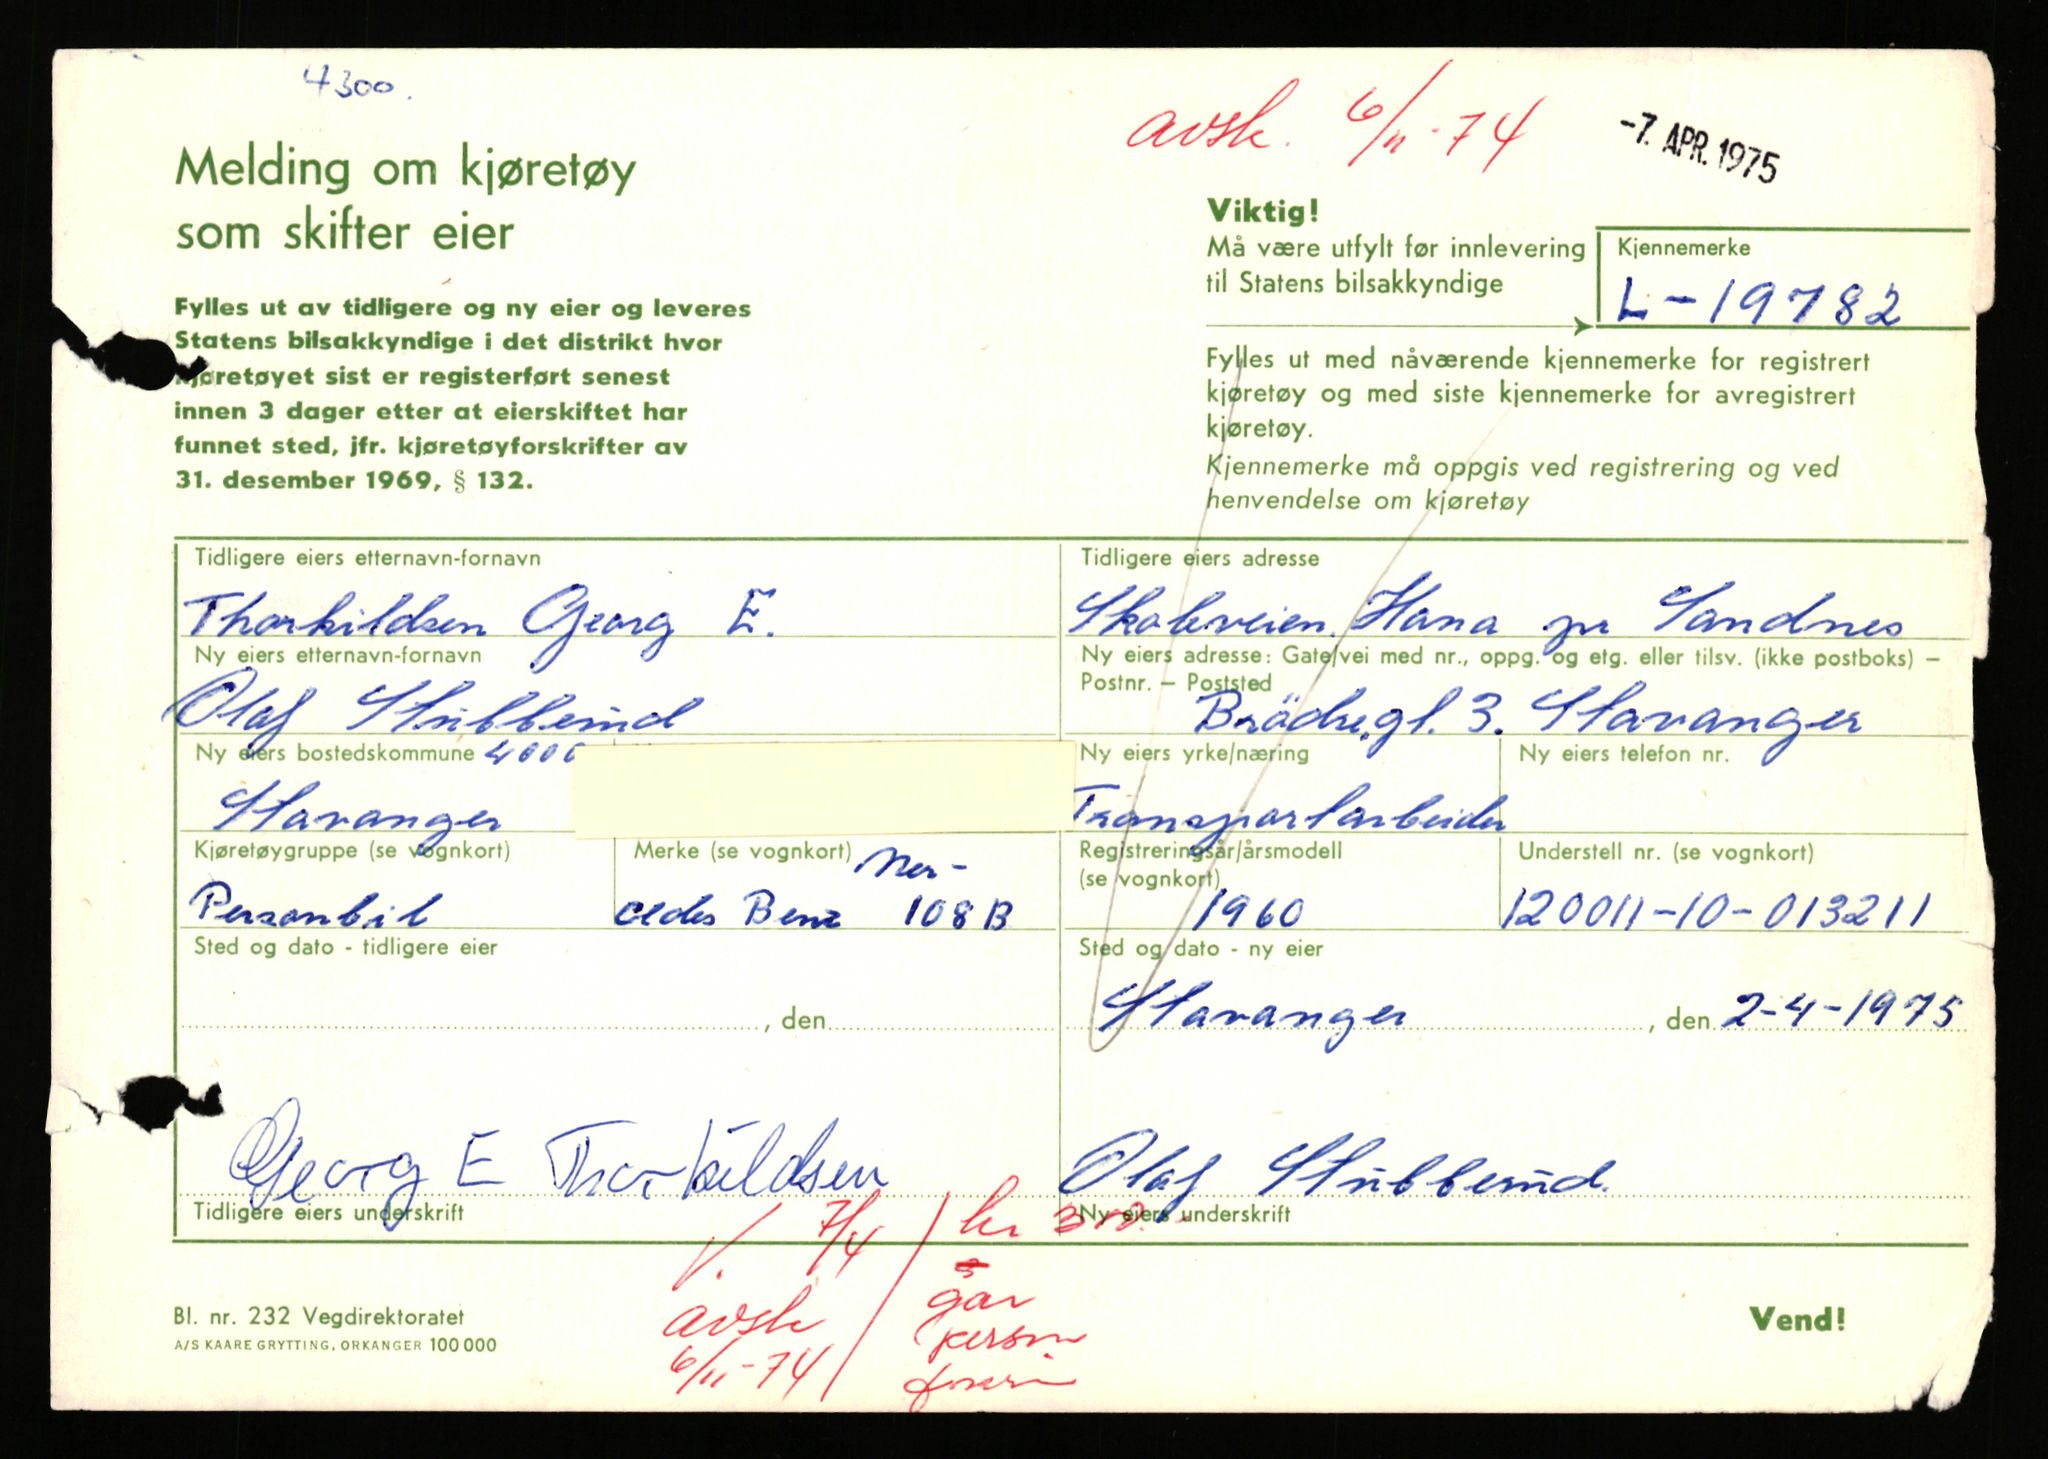 4300.
avsk. 6/11-74
-7. APR. 1975
Melding om kjøretøy
som skifter eier
Fylles ut av tidligere og ny eier og leveres
Statens bilsakkyndige i det distrikt hvor
kjøretøyet sist er registerført senest
innen 3 dager etter at eierskiftet har
funnet sted, jfr. kjøretøyforskrifter av
31. desember 1969, § 132.
Viktig!
Må være utfylt før innlevering
til Statens bilsakkyndige
Kjennemerke
L-19782
Fylles ut med nåværende kjennemerke for registrert
kjøretøy og med siste kjennemerke for avregistrert
kjøretøy.
Kjennemerke må oppgis ved registrering og ved
henvendelse om kjøretøy
Tidligere eiers etternavn-fornavn
Thorkildsen Georg E.
Tidligere eiers adresse
Skoleveien. Hana pr Sandnes
Ny eiers etternavn-fornavn
Olaf Stubberud
Ny eiers adresse: Gate/vei med nr., oppg. og etg. eller tilsv. (ikke postboks) –
Postnr. – Poststed
Brödre.gt. 3. Stavanger
Ny eiers bostedskommune 4000
Stavanger
Ny eiers yrke/næring
Transportarbeider
Ny eiers telefon nr.
Kjøretøygruppe (se vognkort)
Personbil
Merke (se vognkort) Mer-
cedes Benz 108B
Registreringsår/årsmodell
(se vognkort)
1960
Understell nr. (se vognkort)
120011-10-013211
Sted og dato - tidligere eier
, den
Sted og dato - ny eier
Stavanger, den 2-4-1975
Georg E Thorkildsen
Tidligere eiers underskrift
Olaf Stubberud.
Ny eiers underskrift
7/4
avsk
6/11-74
kr
gar
Bl. nr. 232 Vegdirektoratet
A/S KAARE GRYTTING, ORKANGER 100 000
Vend!